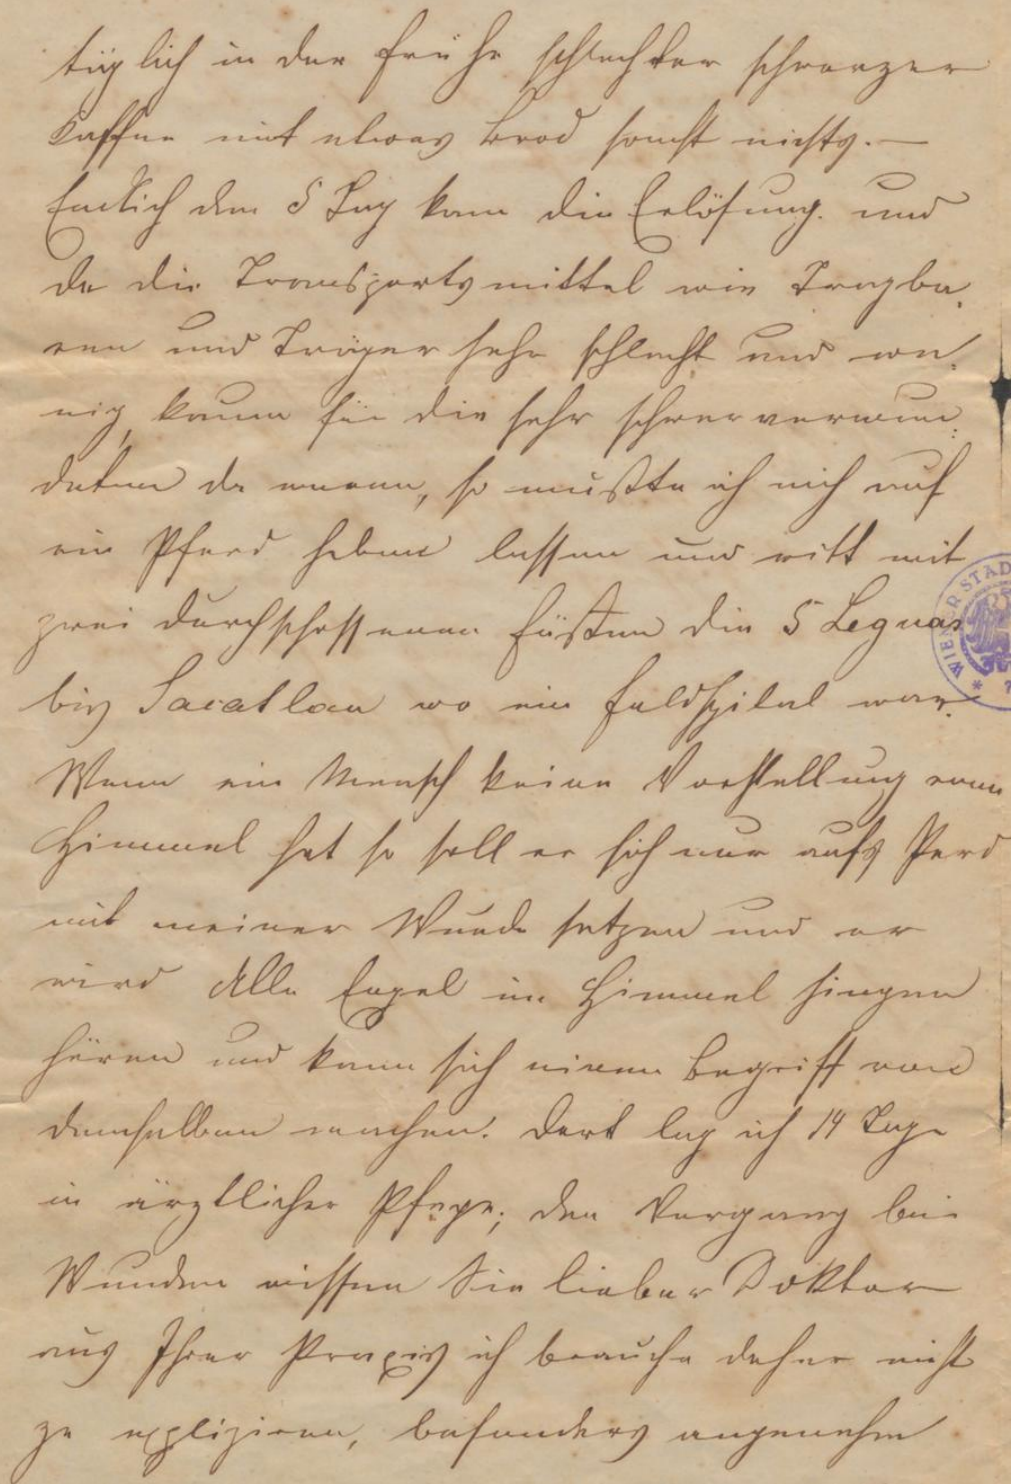 täglich in der Frühe schlechter schwarzer
Kaffee mit etwas Brod sonst nichts. —
Endlich den 5 Tag kam die Erlösung. und
da die Transportsmittel wie Tragba,
ren und Träger sehr schlecht und we,
nig, kaum für die sehr schwerverwun,
deten da waren, so mußte ich mich auf
ein Pferd heben lassen und ritt mit
zwei durchschossenen Füßen die 5 Leguas
bis Sacatlan wo ein Feldspital war.
Wenn ein Mensch keine Vorstellung vom
Himmel hat so soll er sich nur aufs Perd
mit meiner Wunde setzen und er
wird Alle Engel im Himmel singen
hören und kann sich einen Begriff von
demselben machen. Dort lag ich 14 Tage
in ärztlicher Pflege; den Vorgang bei
Wunden wissen Sie lieber Doktor
aus Ihrer Praxis ich brauche daher nicht
zu expliziren, besonders angenehm
WIENER STAD